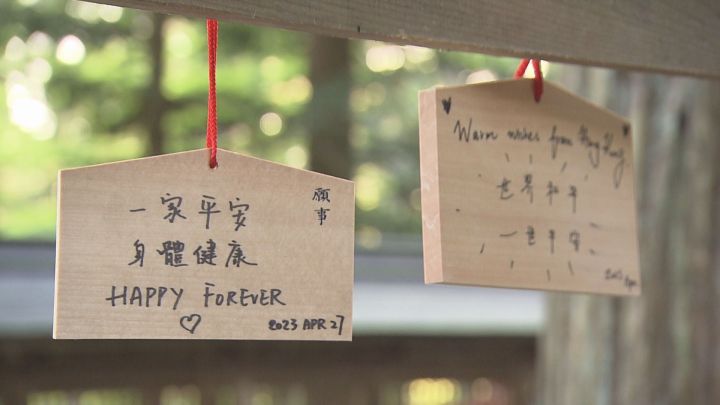 願事
一家平安
身體健康
HAPPY FOREVER
2023 APR 27
Warm wishes from Hong Kong
世界和平
一世平安
2023